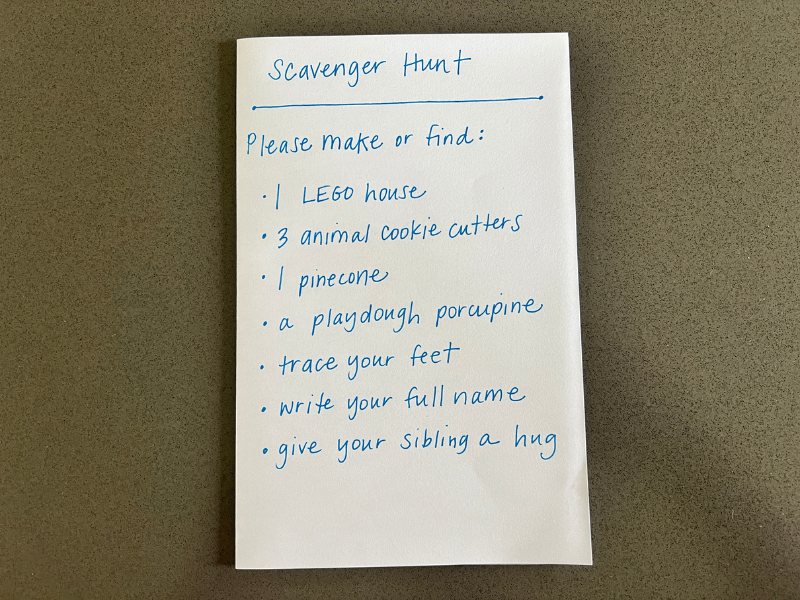 Scavenger Hunt
Please make or find:
• 1 LEGO house
• 3 animal cookie cutters
• 1 pinecone
• a playdough porcupine
• trace your feet
• write your full name
• give your sibling a hug